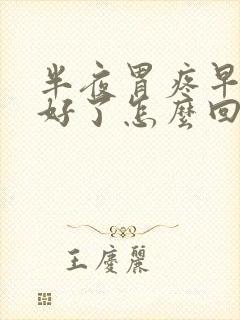 半夜胃疼早
好了怎麼回
王慶麗